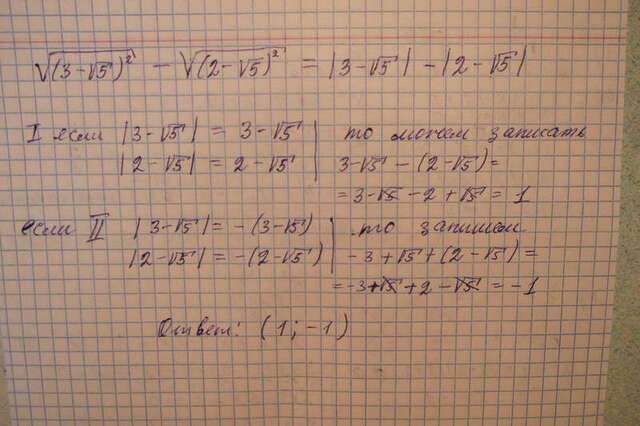 √(3-√5)² - √(2-√5)² = |3-√5| - |2-√5|
I если |3-√5| = 3-√5 | то можем записать
|2-√5| = 2-√5 | 3-√5 - (2-√5) =
= 3-√5 - 2 + √5 = 1
если II |3-√5| = -(3-√5) | то запишем
|2-√5| = -(2-√5) | -3+√5+(2-√5) =
= -3+√5+2-√5 = -1
Ответ: (1; -1)